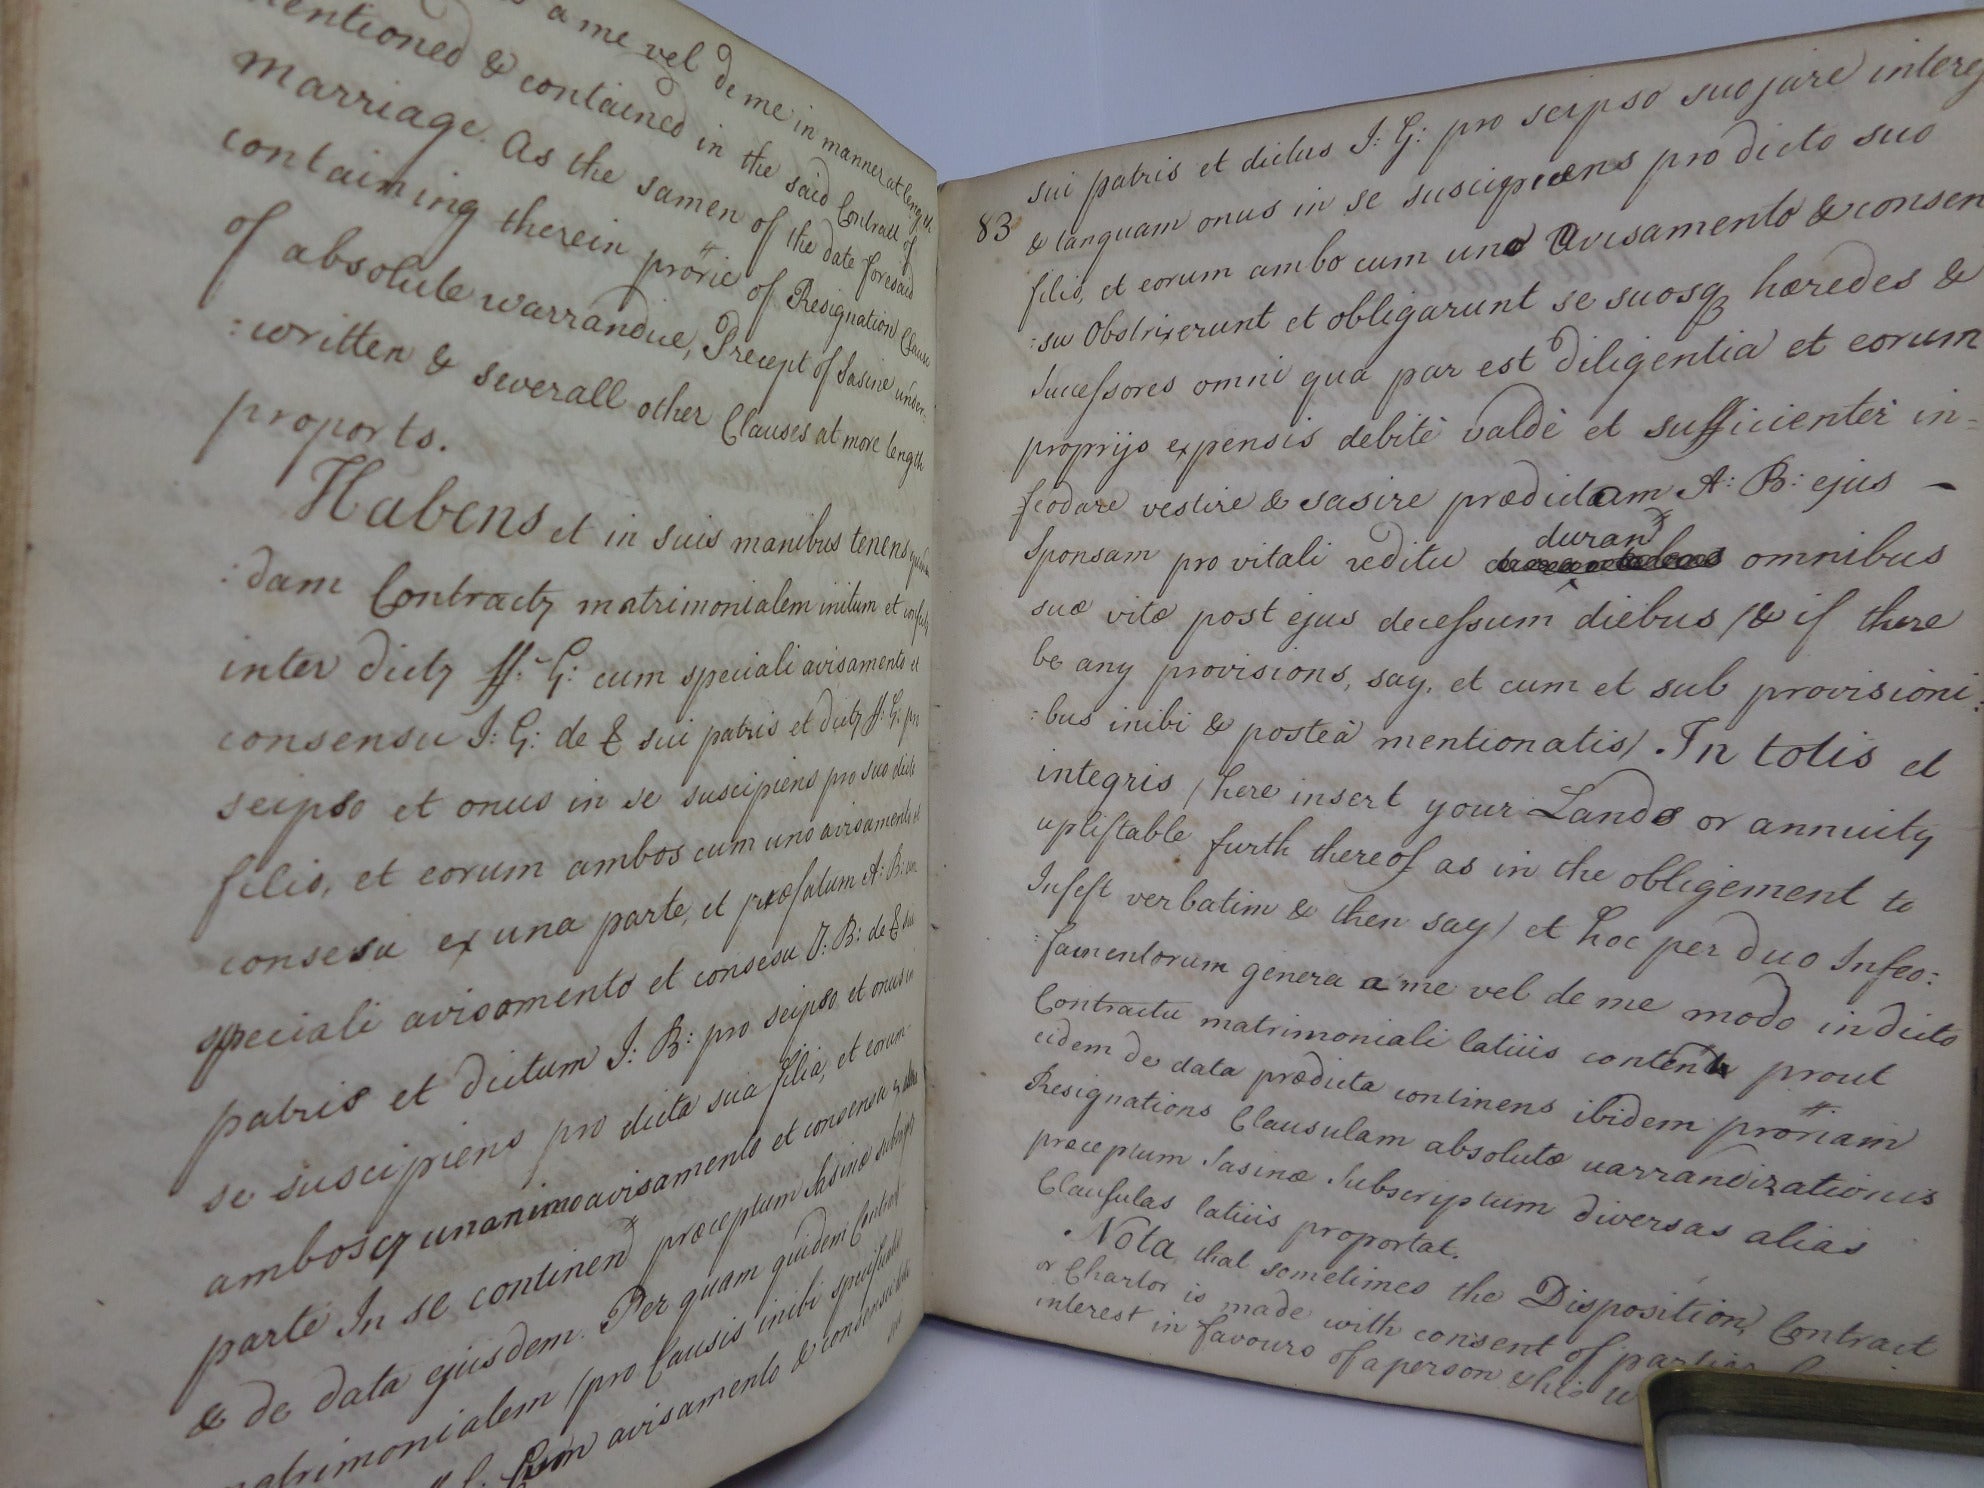 a me vel de me in manner at length
mentioned & contained in the said Contract of
marriage. As the samen of the date foresaid
containing therein prõrie of Resignation Clause
of absolute warrandice, Precept of Sasine under:
:written & severall other Clauses at more length
proports.
Habens et in suis manibus tenens
:dam Contractz matrimonialem initum et
inter dictz ff: G: cum speciali avisamento et
consensu J: G: de sui patris et dictz ff: G: pro
seipso et onus in se suscipiens pro suo dicto
filio, et eorum ambos cum uno avisamento et
consesu ex una parte, et præfatum A: B: cum
speciali avisamento et consesu J: B: de sui
patris et dictum J: B: pro seipso et onus in
se suscipiens pro dicta sua filia, et eorum
ambosq unanimo avisamento et consensu ex altera
parte In se continend præceptum Sasinæ subscript
& de data ejusdem. Per quam quidem Contract
matrimonialem /pro Causis inibi specificatis
Cum avisamento & consensu
83
sui patris et dictus J: G: pro seipso suo jure interes
& tanquam onus in se suscipiens pro dicto suo
filio, et eorum ambo cum uno Avisamento & consen
:su Obstrixerunt et obligarunt se suosq hæredes &
Successores omni qua par est diligentia et eorum
proprijs expensis debitè validè et sufficienter in=
feodare vestire & sasire prædictam A: B: ejus -
Sponsam pro vitali reditu durand omnibus
suæ vitæ post ejus decessum diebus /& if there
be any provisions, say, et cum et sub provisioni:
:bus inibi & posteà mentionatis/. In totis et
integris /here insert your Lands or annuity
upliftable furth thereof as in the obligement to
Infeft verbatim & then say/ et hoc per duo Infeo:
:famentorum genera a me vel de me modo in dicto
Contractu matrimoniali latius content prout
eidem de data prædicta continens ibidem prõriam
Resignations Clausulam absolutæ warrandizationis
præceptum Sasinæ Subscriptum diversas alias
Clausulas latius proportat.
Nota that sometimes the Disposition, Contract
or Charter is made with consent of parties
interest in favours of a person & his w